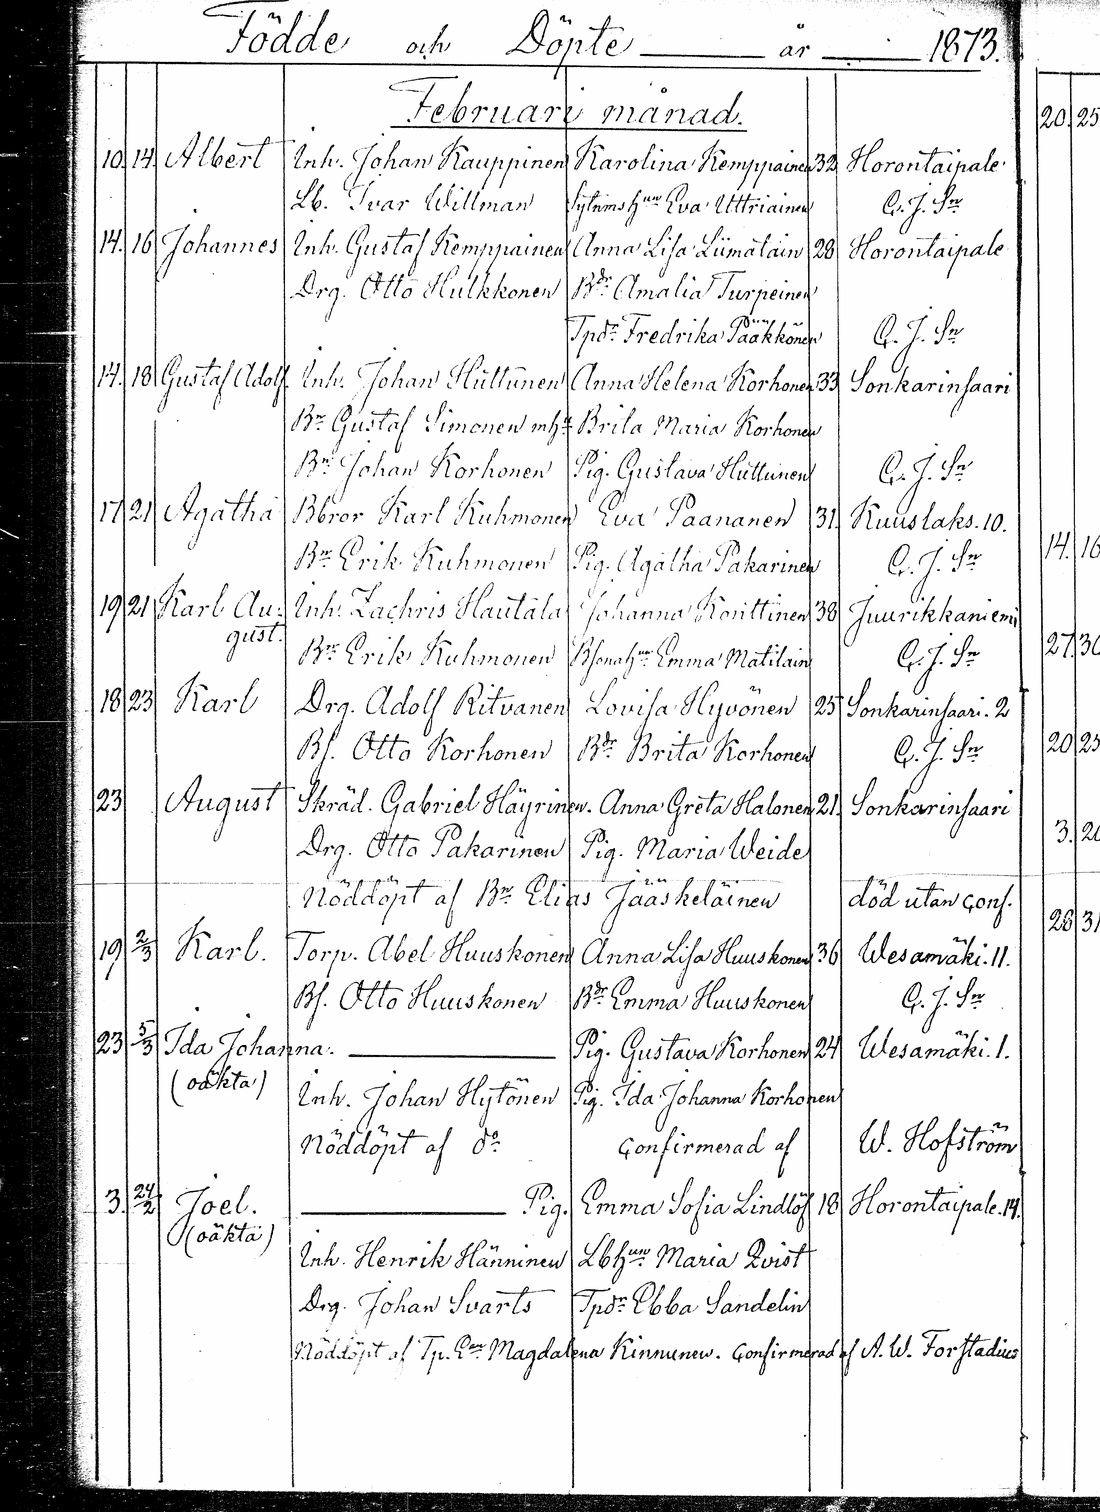 Födde och Döpte år 1873.
Februari månad.
10. 14. Albert Inh. Johan Kauppinen Karolina Kemppainen 32 Horontaipale
Lb. Ivar Willman Eva Uttriainen C. J. Sn
14. 16 Johannes Inh. Gustaf Kemppainen Anna Lisa Liimatain 28 Horontaipale
Drg. Otto Hulkkonen Bdr Amalia Turpeinen
Tpdr Fredrika Pääkkönen C. J. Sn
14. 18 Gustaf Adolf. Inh. Johan Huttunen Anna Helena Korhonen 33 Sonkarinsaari
Bn Gustaf Simonen mhu Brita Maria Korhonen
Bn Johan Korhonen Pig. Gustava Huttunen C. J. Sn
17 21 Agatha Bbror Karl Kuhmonen Eva Paananen 31. Kuuslaks. 10.
Bn Erik Kuhmonen Pig. Agatha Pakarinen C. J. Sn
19 21 Karl Au- Inh. Zachris Hautala Johanna Konttinen 38 Juurikkaniemi
gust.
Bn Erik Kuhmonen Emma Matilain C. J. Sn
18 23 Karl Drg. Adolf Ritvanen Lovisa Hyvönen 25 Sonkarinsaari. 2
Bs. Otto Korhonen Bdr Brita Korhonen C. J. Sn
23 August Skräd. Gabriel Häyrinen. Anna Greta Halonen 21. Sonkarinsaari
Drg. Otto Pakarinen Pig. Maria Weide
Nöddöpt af Bn Elias Jääskeläinen död utan conf.
19 2/3 Karl. Torp. Abel Huuskonen Anna Lisa Huuskonen 36 Wesamäki. 11.
Bs. Otto Huuskonen Bdr Emma Huuskonen C. J. Sn
23 5/3 Ida Johanna. Pig. Gustava Korhonen 24 Wesamäki. 1.
(oäkta)
Inh. Johan Hytönen Pig. Ida Johanna Korhonen
Nöddöpt af do Confirmerad af W. Hofström
3. 24/2 Joel. Pig. Emma Sofia Lindlöf 18 Horontaipale. 14.
(oäkta)
Inh. Henrik Hänninen Lbhun Maria Qvist
Drg. Johan Svarts Tpdr Ebba Sandelin
Nöddöpt af Tp. Magdalena Kinnunen. Confirmerad af A. W. Forstadius
20. 25
14. 16
27. 30
20 25
3. 20
28 31